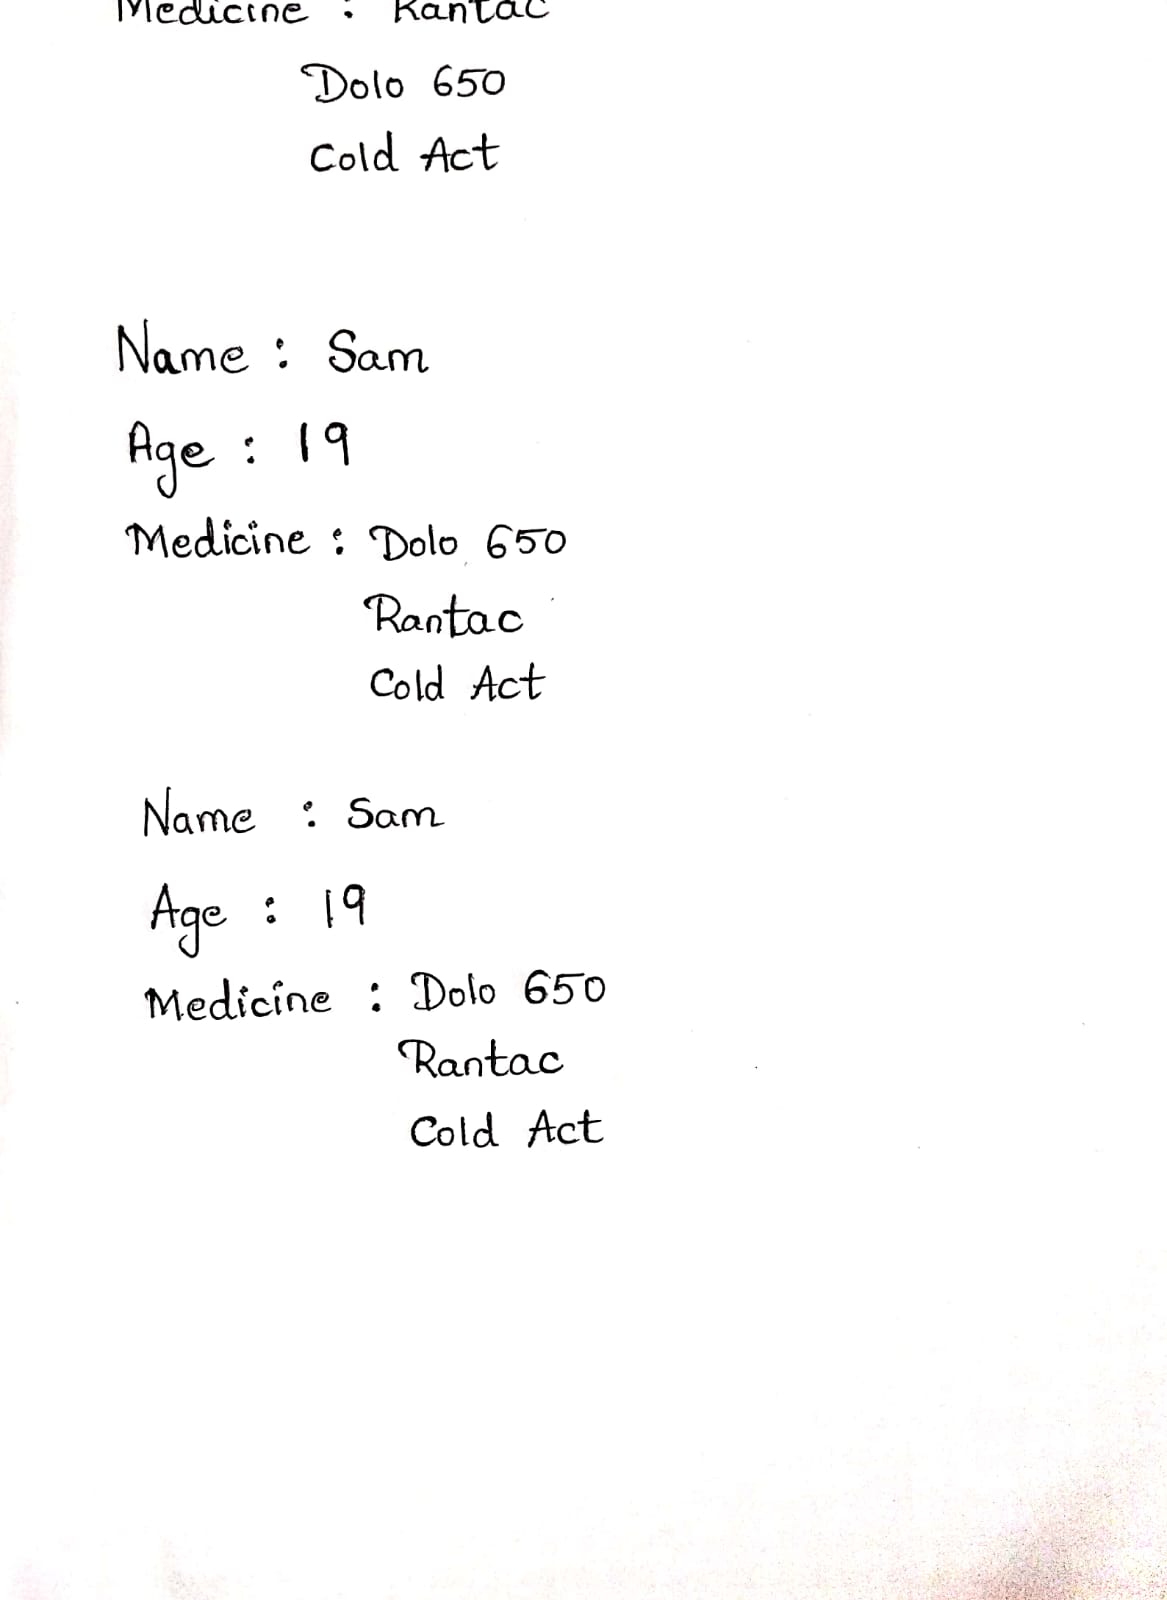 Medicine : Rantac
Dolo 650
Cold Act
Name : Sam
Age : 19
Medicine : Dolo 650
Rantac
Cold Act
Name : Sam
Age : 19
Medicine : Dolo 650
Rantac
Cold Act